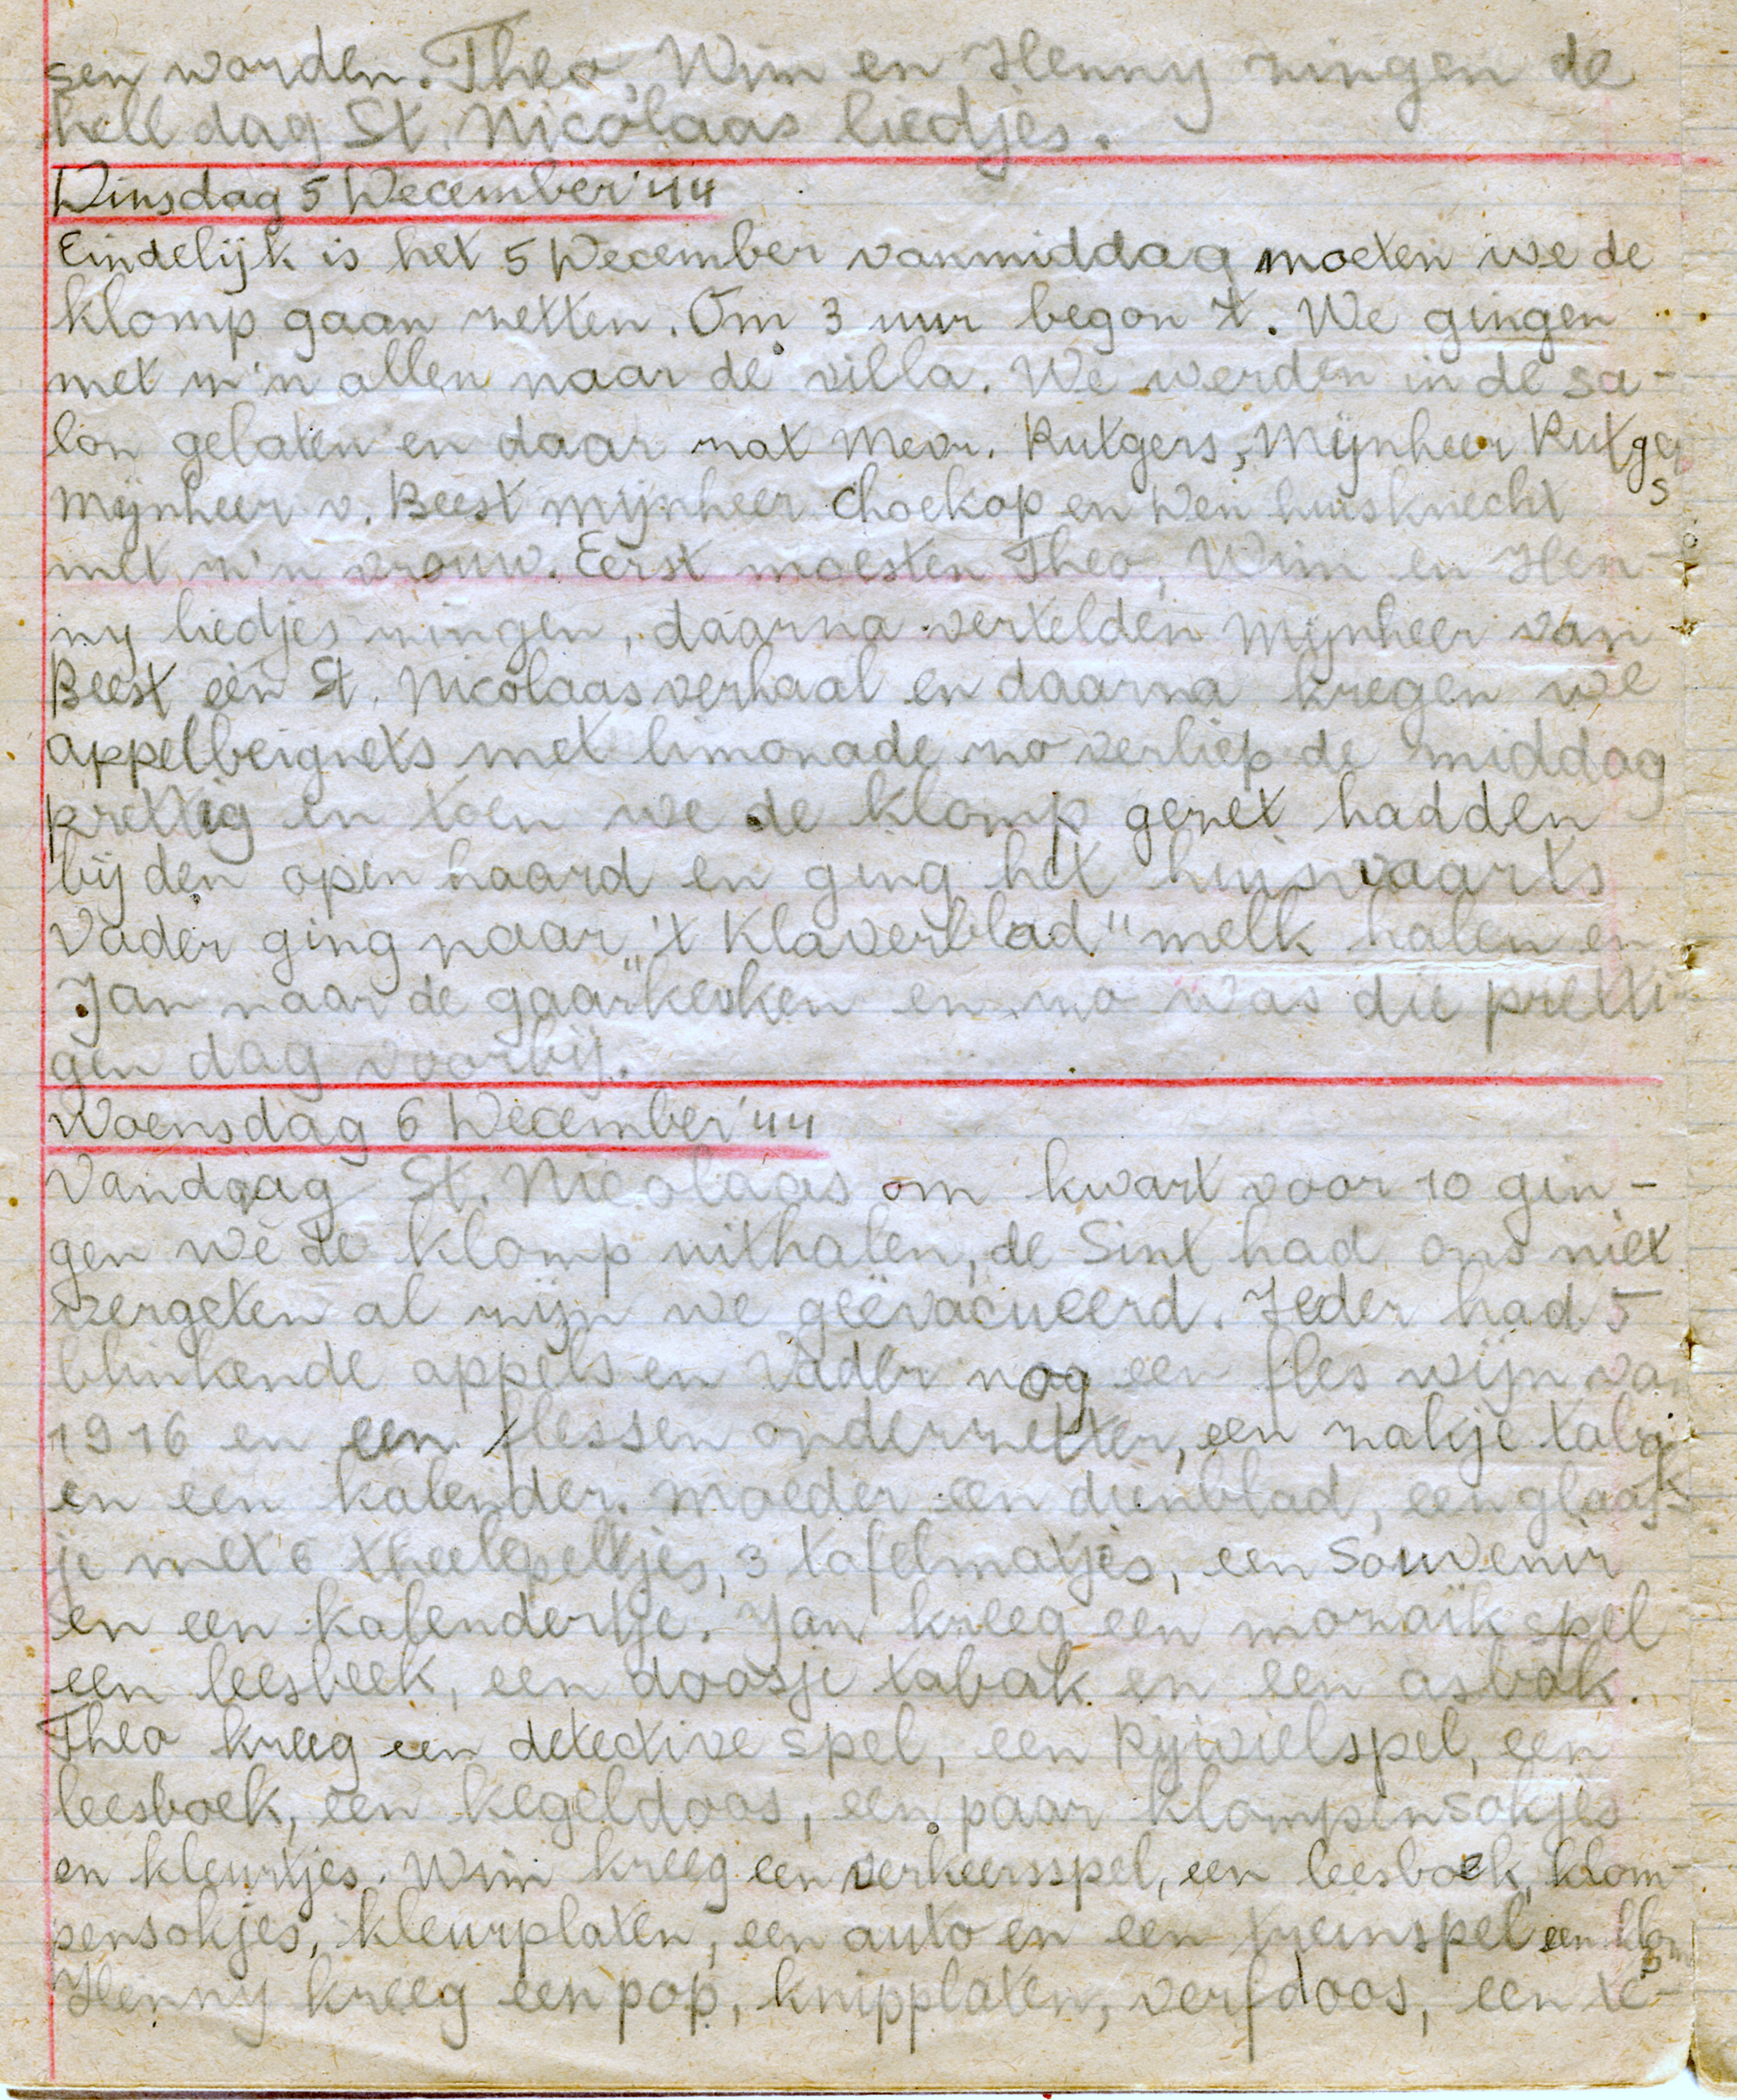 sen worden. Theo, Wim en Henny zingen de
heel dag St. Nicolaas liedjes.
Dinsdag 5 December '44
Eindelijk is het 5 December vanmiddag moeten we de
klomp gaan zetten. Om 3 uur begon 't. We gingen
met z'n allen naar de villa. We werden in de sa-
lon gelaten en daar zat Mevr. Rutgers, Mijnheer Rutgers
Mijnheer v. Beest mijnheer Choekop en Den huisknecht
met z'n vrouw. Eerst moesten Theo, Wim en Hen-
ny liedjes zingen, daarna vertelden Mijnheer van
Beest een St. Nicolaasverhaal en daarna kregen we
appelbeignets met limonade zo verliep de middag
prettig en toen we de klomp gezet hadden
bij den open haard en ging het huiswaarts
Vader ging naar "'t Klaverblad" melk halen en
Jan naar de "gaarkeuken en zo was die pretti-
gen dag voorbij.
Woensdag 6 December '44
Vandaag St. Nicolaas om kwart voor 10 gin-
gen we de klomp uithalen, de Sint had ons niet
vergeten al zijn we geëvacueerd. Ieder had 5
blinkende appels en Vader nog een fles wijn van
1916 en een flessen onderzetter, een zakje tabak
en een kalender. Moeder een dienblad, een glaas-
je met 6 theelepeltjes, 3 tafelmatjes, een Souvenir
en een kalendertje. Jan kreeg een mozaïk spel
een leesbeek, een doosje tabak en een asbak.
Theo kreeg een detective spel, een Rijwielspel, een
leesboek, een kegeldoos, een paar klompensokjes
en kleurtjes. Wim kreeg een verkeersspel, een leesboek, klom-
pensokjes, kleurplaten, een auto en een treinspel een klomp
Henny kreeg een pop, knipplaten, verfdoos, een te-